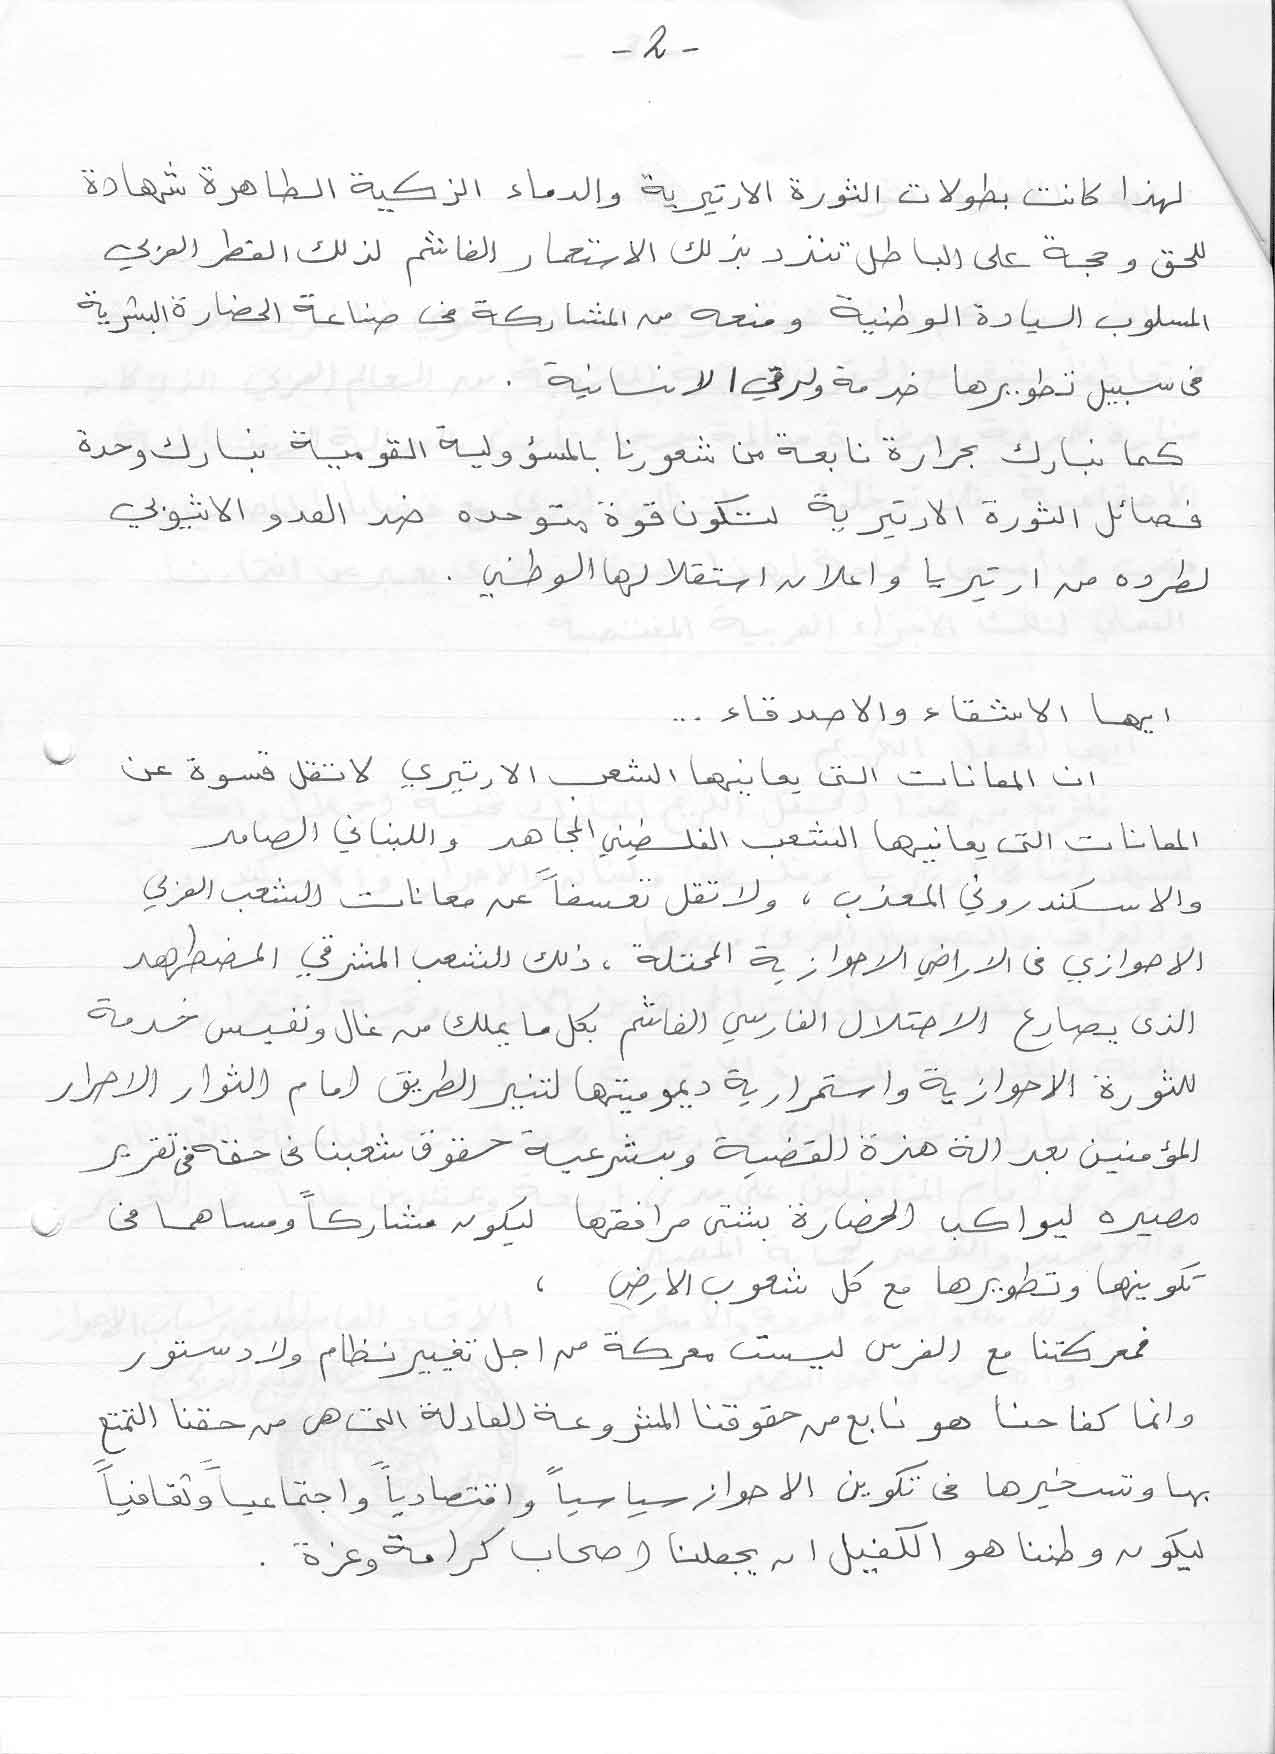 - 2 -
لهذا كانت بطولات الثورة الارتيرية والدماء الزكية الطاهرة شهادة
للحق وحجة على الباطل تندد بذلك الاستعمار الغاشم لذلك القطر العربي
المسلوب السيادة الوطنية ومنعه من المشاركة في صناعة الحضارة البشرية
في سبيل تطويرها خدمة ولرقي الانسانية .
كما نبارك بحرارة نابعة من شعورنا بالمسؤولية القومية نبارك وحدة
فصائل الثورة الارتيرية لتكون قوة متوحده ضد العدو الاثيوبي
لطرده من ارتيريا واعلان استقلالها الوطني .
ايها الاشقاء والاصدقاء ...
ان المعانات التي يعانيها الشعب الارتيري لا تقل قسوة عن
المعانات التي يعانيها الشعب الفلسطيني المجاهد واللبناني الصامد
والاسكندروني المعذب ، ولا تقل تعسفاً عن معانات الشعب العربي
الاحوازي في الاراضي الاحوازية المحتلة ، ذلك الشعب المشرقي المضطهد
الذي يصارع الاحتلال الفارسي الغاشم بكل ما يملك من غال ونفيس خدمة
للثورة الاحوازية واستمرارية ديموميتها لتنير الطريق امام الثوار الاحرار
المؤمنين بعدالة هذة القضية وبشرعية حقوق شعبنا في حقه في تقرير
مصيره ليواكب الحضارة بشتى مرافقها ليكون مشاركاً ومساهما في
تكوينها وتطويرها مع كل شعوب الارض ،
فمعركتنا مع الفرس ليست معركة من اجل تغيير نظام ولا دستور
وانما كفاحنا هو نابع من حقوقنا المشروعة العادلة التي هي من حقنا التمتع
بها وتسخيرها في تكوين الاحواز سياسياً واقتصادياً واجتماعياً وثقافياً
ليكون وطننا هو الكفيل ان يجعلنا اصحاب كرامة وعزة .